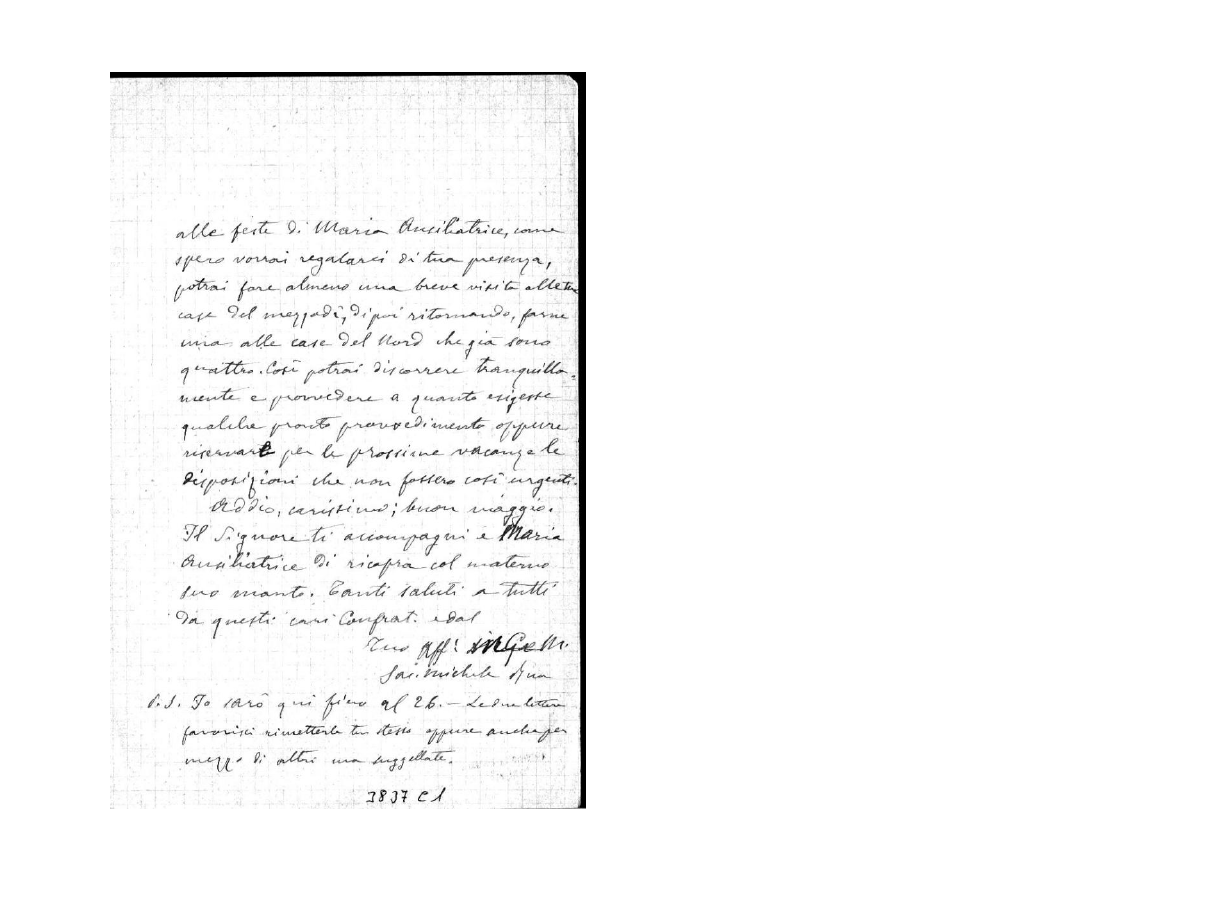 alle feste di Maria Ausiliatrice, come
spero vorrai regalarci di tua presenza,
potrai fare almeno una breve visita alle tre
case del mezzodì, dipoi ritornando, farne
una alle case del Nord che già sono
quattro. Così potrai discorrere tranquilla-
mente e provvedere a quanto esigesse
qualche pronto provvedimento oppure
riservare per le prossime vacanze le
disposizioni che non fossero così urgenti.
Addio, carissimo; buon viaggio.
Il Signore ti accompagni e Maria
Ausiliatrice di ricopra col materno
suo manto. Tanti saluti a tutti
da questi cari Confrat. e dal
Tuo Aff:
Sac. Michele Rua
P.S. Io sarò qui fino al 26. — Le due lettere
favorisci rimetterle tu stesso oppure anche per
mezzo di altri ma suggellate.
3837 C 1